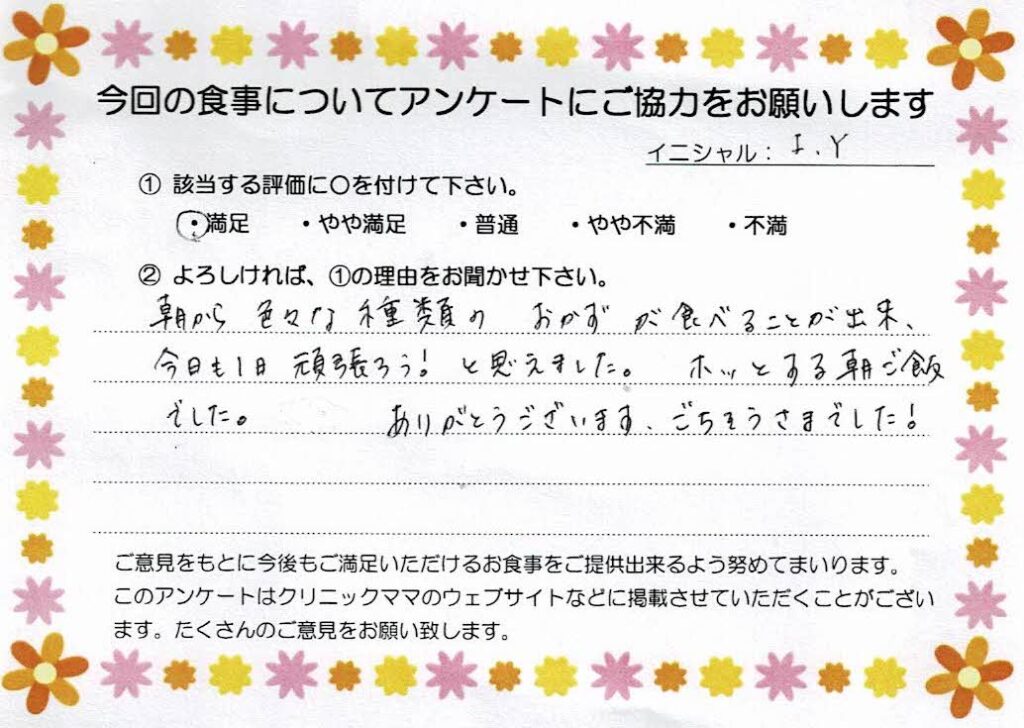 今回の食事についてアンケートにご協力をお願いします
イニシャル： I.Y
① 該当する評価に〇を付けて下さい。
・満足 ・やや満足 ・普通 ・やや不満 ・不満
② よろしければ、①の理由をお聞かせ下さい。
朝から色々な種類の おかずが食べることが出来、
今日も1日頑張ろう！と思えました。 ホッとする朝ご飯
でした。 ありがとうございます、ごちそうさまでした！
ご意見をもとに今後もご満足いただけるお食事をご提供出来るよう努めてまいります。
このアンケートはクリニックママのウェブサイトなどに掲載させていただくことがござい
ます。たくさんのご意見をお願い致します。